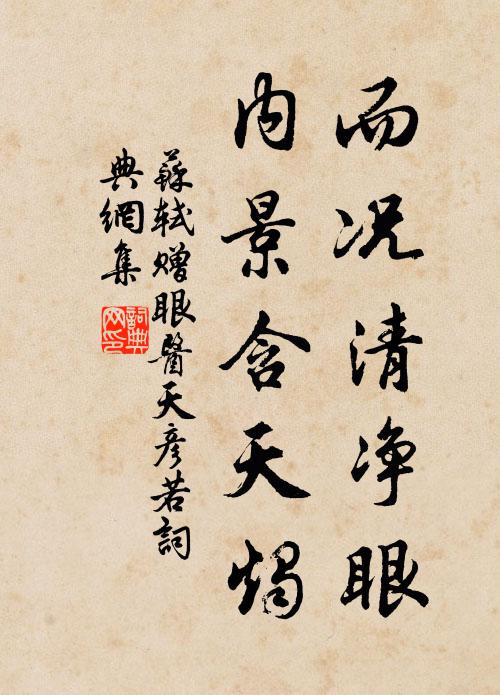 而況清净眼
內景含天燭
蘇軾贈眼醫天彥若詞
典網集
詞典网印